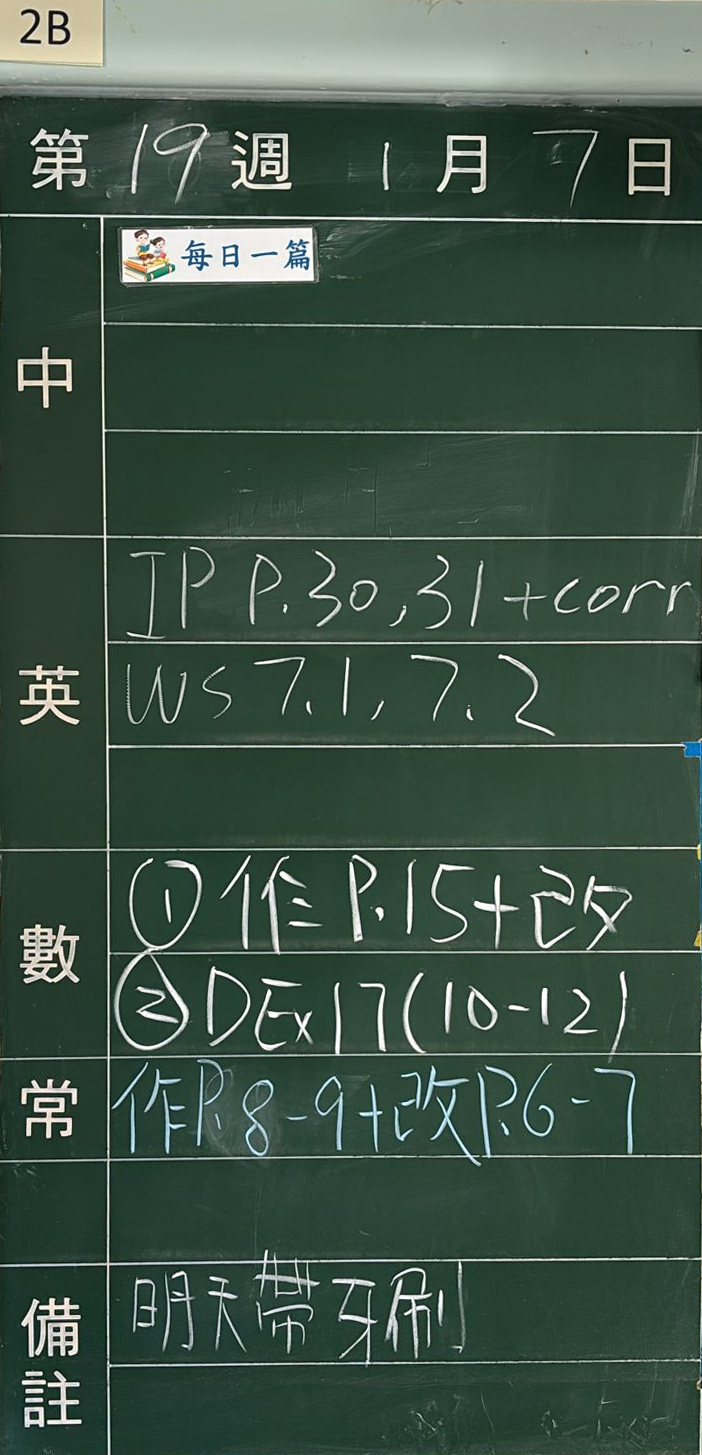 2B
第 19 週 1 月 7 日
中 每日一篇
英 IP P.30,31+corr
WS 7.1, 7.2
數 ① 作 P.15+改
② DEx17(10-12)
常 作P.8-9+改P.6-7
備註 明天帶牙刷